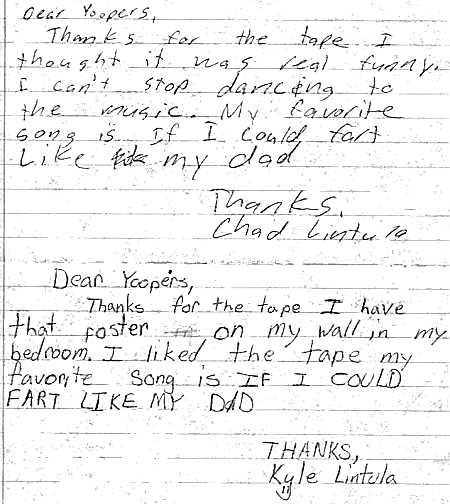 Dear Yoopers,
Thanks for the tape I
thought it was real funny.
I can't stop dancing to
the music. My favorite
song is If I Could fart
Like my dad
Thanks,
Chad Lintula
Dear Yoopers,
Thanks for the tape I have
that poster on my wall in my
bedroom. I liked the tape my
favorite song is IF I COULD
FART LIKE MY DAD
THANKS,
Kyle Lintula